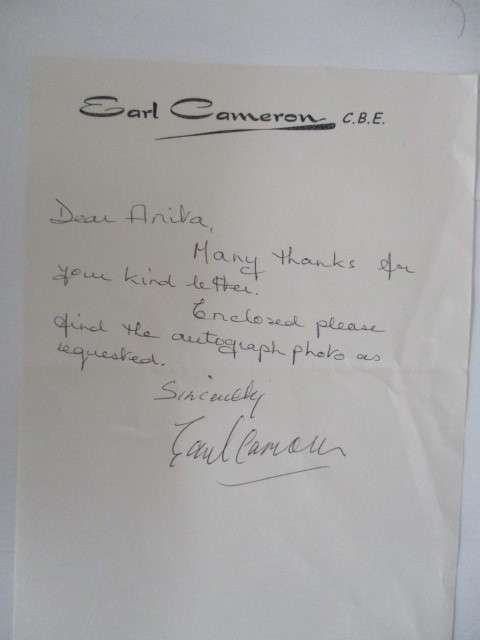 Earl Cameron C.B.E.
Dear Anita,
Many thanks for
your kind letter.
Enclosed please
find the autograph photo as
requested.
Sincerely
Earl Cameron